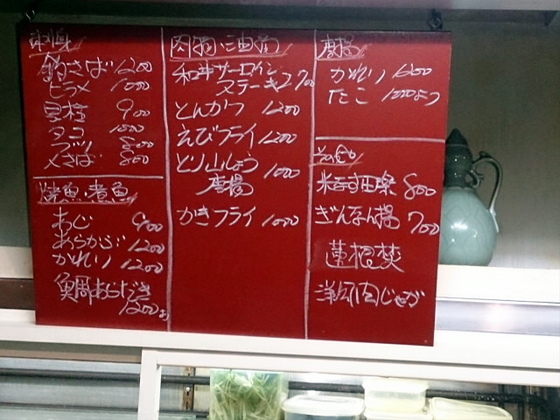 刺身
釣さば 1200
ヒラメ 1000
貝柱 900
タコ 1000
ブツ 800
〆さば 800
焼魚・煮魚
あじ 900
あらかぶ 1200
かれい 1200
鯛あらだき
1200より
肉物・油物
和牛サーロイン
ステーキ 2700
とんかつ 1200
えびフライ 1200
とり山しょう 1000
唐揚
かきフライ 1000
唐揚
かれい
たこ
その他
800
ぎんなん揚 700
蓮根焚
洋風肉じゃが